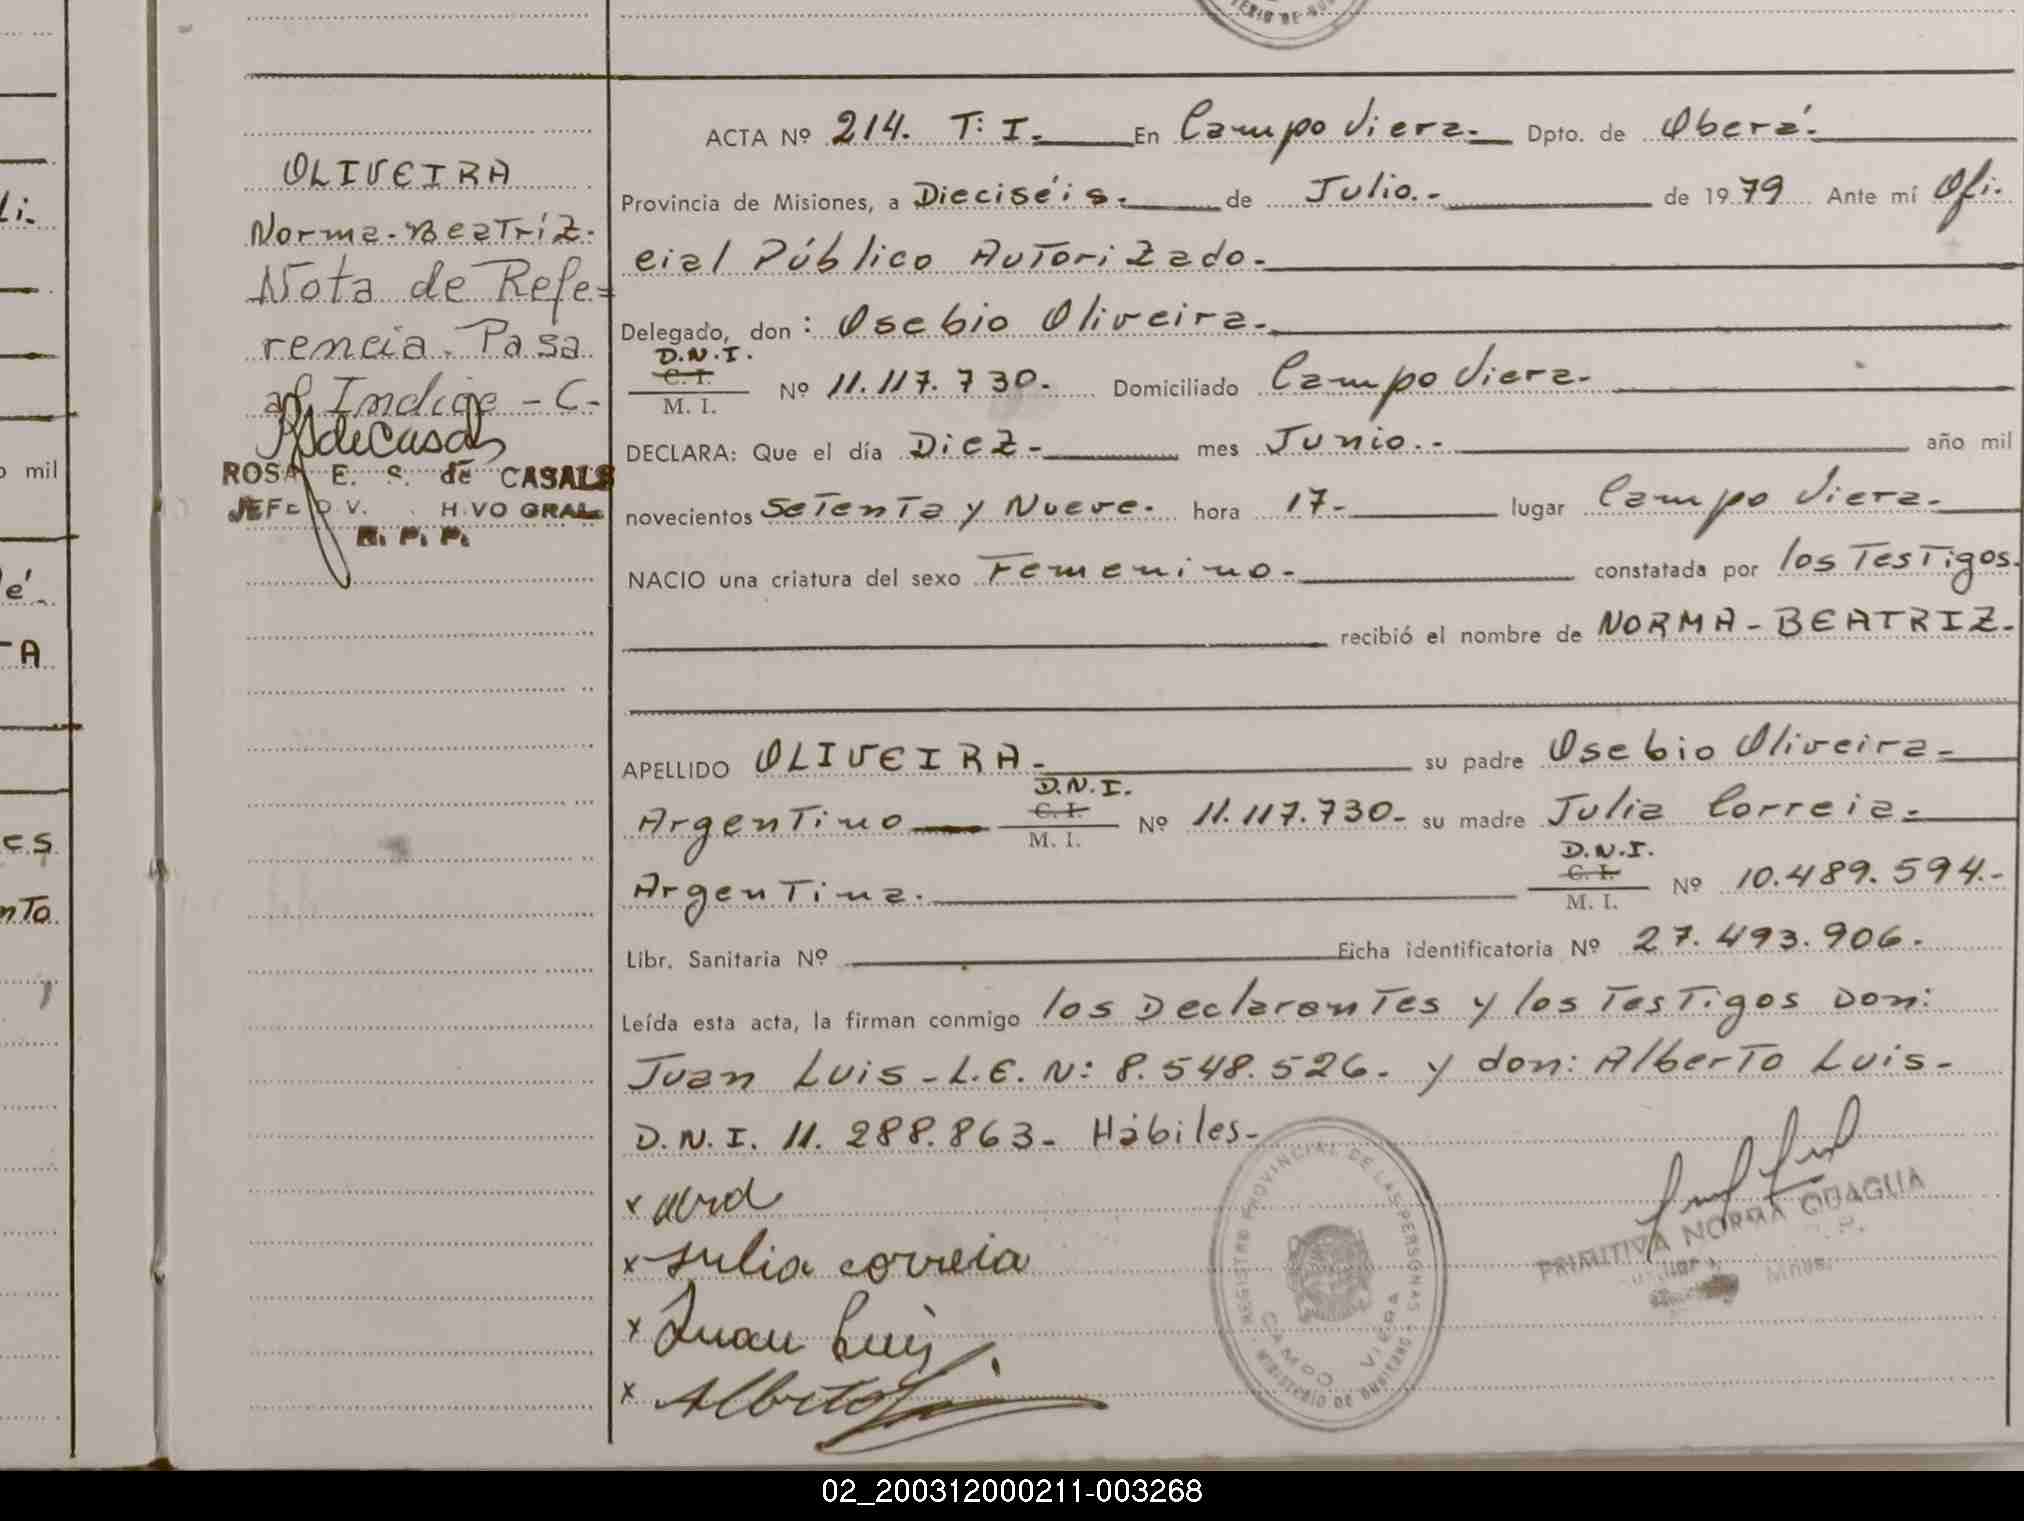 TERIO DE
OLIVEIRA
Norma-Beatríz.
Nota de Refe=
rencia. Pasa
al Indice - C-
ROSA E. S. de CASALS
JEFE H.VO GRAL
R. P. P.
li.
o mil
é.
TA
es
nTo.
ACTA Nº 214. T: I.- En Campo Viera.- Dpto. de Oberá.-
Provincia de Misiones, a Dieciséis.- de Julio.- de 1979 Ante mí Ofi.
cial Público Autorizado.-
Delegado, don : Osebio Oliveira.-
D.N.I.
C. I.
M. I.
Nº 11.117.730. Domiciliado Campo Viera.-
DECLARA: Que el día Diez.- mes Junio.- año mil
novecientos Setenta y Nueve. hora 17.- lugar Campo Viera.-
NACIO una criatura del sexo Femenino.- constatada por los Testigos.
recibió el nombre de NORMA-BEATRIZ.-
APELLIDO OLIVEIRA.- su padre Osebio Oliveira.-
Argentino
D.N.I.
C. I.
M. I.
Nº 11.117.730- su madre Julia Correia.-
Argentina.
D.N.I.
C. I.
M. I.
Nº 10.489.594.-
Libr. Sanitaria Nº Ficha identificatoria Nº 27.493.906.
Leída esta acta, la firman conmigo los Declarantes y los Testigos Don:
Juan Luis-L.E. N: 8.548.526. y don: Alberto Luis-
D.N.I. 11.288.863- Hábiles-
x
x Julia correia
x Juan Luis
x Alberto
REGISTRO PROVINCIAL DE LAS PERSONAS
CAMPO VIERA
PRIMITIVA NORMA QUAGLIA
02_200312000211-003268